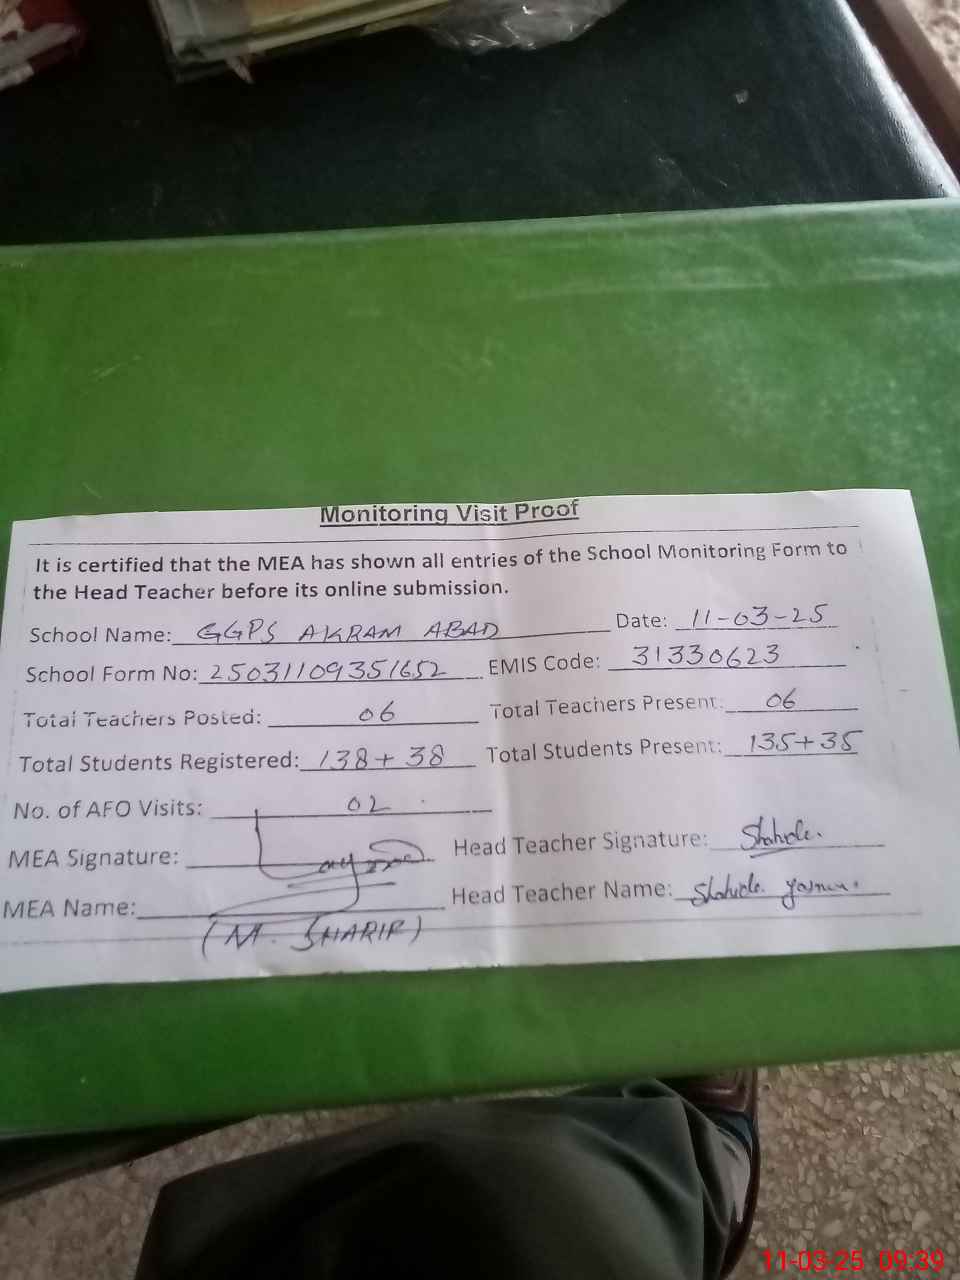 Monitoring Visit Proof
It is certified that the MEA has shown all entries of the School Monitoring Form to
the Head Teacher before its online submission.
School Name: GGPS AKRAM ABAD Date: 11-03-25
School Form No: 25031109351652 EMIS Code: 31330623
Total Teachers Posted: 06 Total Teachers Present: 06
Total Students Registered: 138+38 Total Students Present: 135+35
No. of AFO Visits: 02
MEA Signature: Head Teacher Signature: Shahida
MEA Name: Head Teacher Name: Shahida Yasmin
(M. SHARIF)
11-03-25 09:39